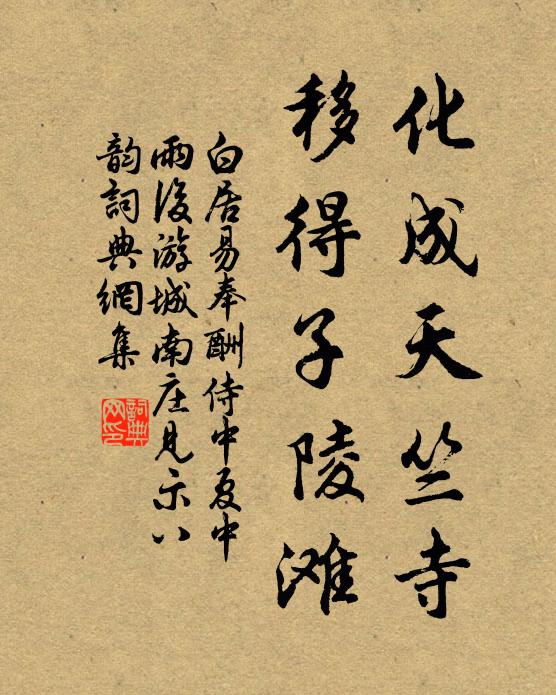 化成天竺寺
移得子陵滩
白居易奉酬侍中夏中
雨後游城南庄見示八
韵詞典網集
詞典
网印